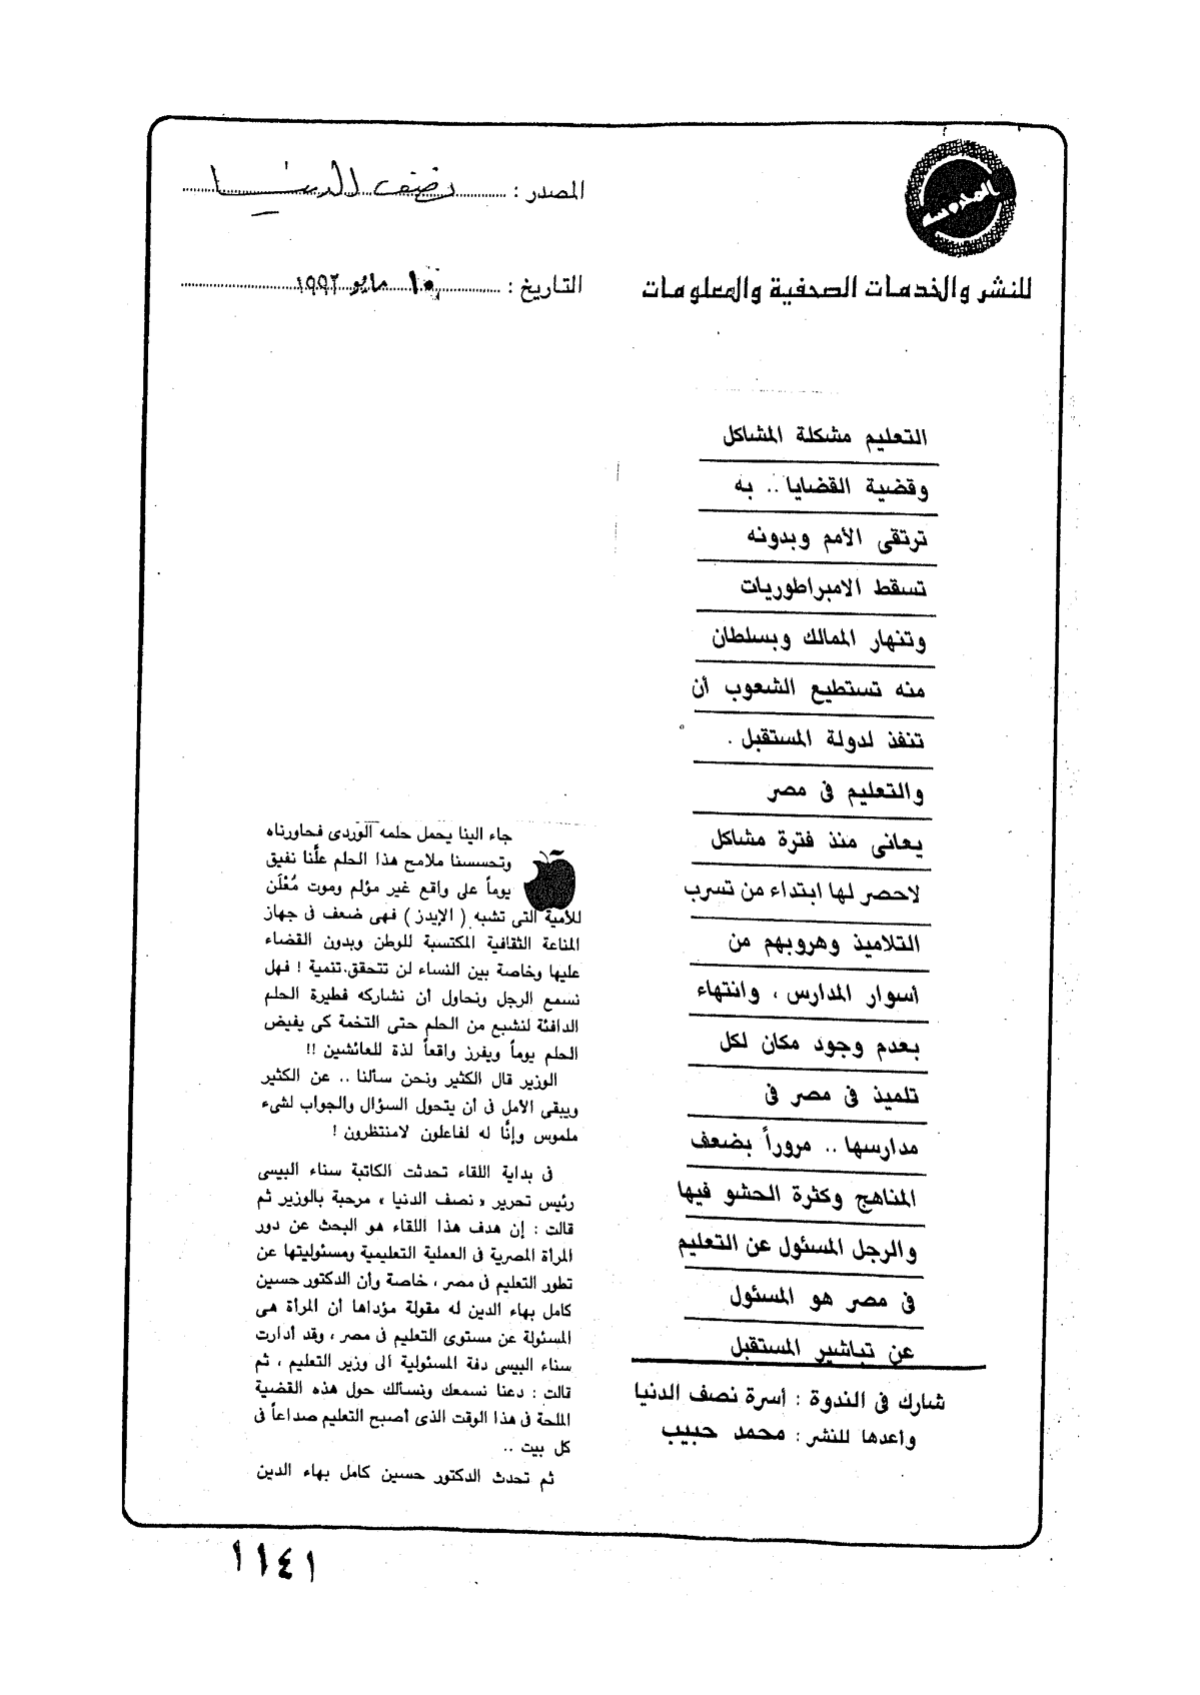 المصدر : نصف الدنيا
للنشر والخدمات الصحفية والمعلومات
التاريخ : ١٠ مايو ١٩٩٢
التعليم مشكلة المشاكل
وقضية القضايا .. به
ترتقى الأمم وبدونه
تسقط الامبراطوريات
وتنهار الممالك وبسلطان
منه تستطيع الشعوب أن
تنفذ لدولة المستقبل .
والتعليم فى مصر
يعانى منذ فترة مشاكل
لاحصر لها ابتداء من تسرب
التلاميذ وهروبهم من
أسوار المدارس ، وانتهاء
بعدم وجود مكان لكل
تلميذ فى مصر فى
مدارسها .. مروراً بضعف
المناهج وكثرة الحشو فيها
والرجل المسئول عن التعليم
فى مصر هو المسئول
عن تباشير المستقبل
شارك فى الندوة : أسرة نصف الدنيا
وأعدها للنشر : محمد حبيب
جاء الينا يحمل حلمه الوردى فحاورناه
وتحسسنا ملامح هذا الحلم علَّنا نفيق
يوماً على واقع غير مؤلم وموت مُعْلَن
للأمية التى تشبه ( الإيدز ) فهى ضعف فى جهاز
المناعة الثقافية المكتسبة للوطن وبدون القضاء
عليها وخاصة بين النساء لن تتحقق تنمية ! فهل
نسمع الرجل ونحاول أن نشاركه فطيرة الحلم
الدافئة لنشبع من الحلم حتى التخمة كى يفيض
الحلم يوماً ويفرز واقعاً لذة للعائشين !!
الوزير قال الكثير ونحن سألنا .. عن الكثير
ويبقى الأمل فى أن يتحول السؤال والجواب لشىء
ملموس وإنَّا له لفاعلون لامنتظرون !
فى بداية اللقاء تحدثت الكاتبة سناء البيسى
رئيس تحرير « نصف الدنيا » مرحبة بالوزير ثم
قالت : إن هدف هذا اللقاء هو البحث عن دور
المرأة المصرية فى العملية التعليمية ومسئوليتها عن
تطور التعليم فى مصر ، خاصة وأن الدكتور حسين
كامل بهاء الدين له مقولة مؤداها أن المرأة هى
المسئولة عن مستوى التعليم فى مصر ، وقد أدارت
سناء البيسى دفة المسئولية الى وزير التعليم ، ثم
قالت : دعنا نسمعك ونسألك حول هذه القضية
الملحة فى هذا الوقت الذى أصبح التعليم صداعاً فى
كل بيت ..
ثم تحدث الدكتور حسين كامل بهاء الدين
١١٤١